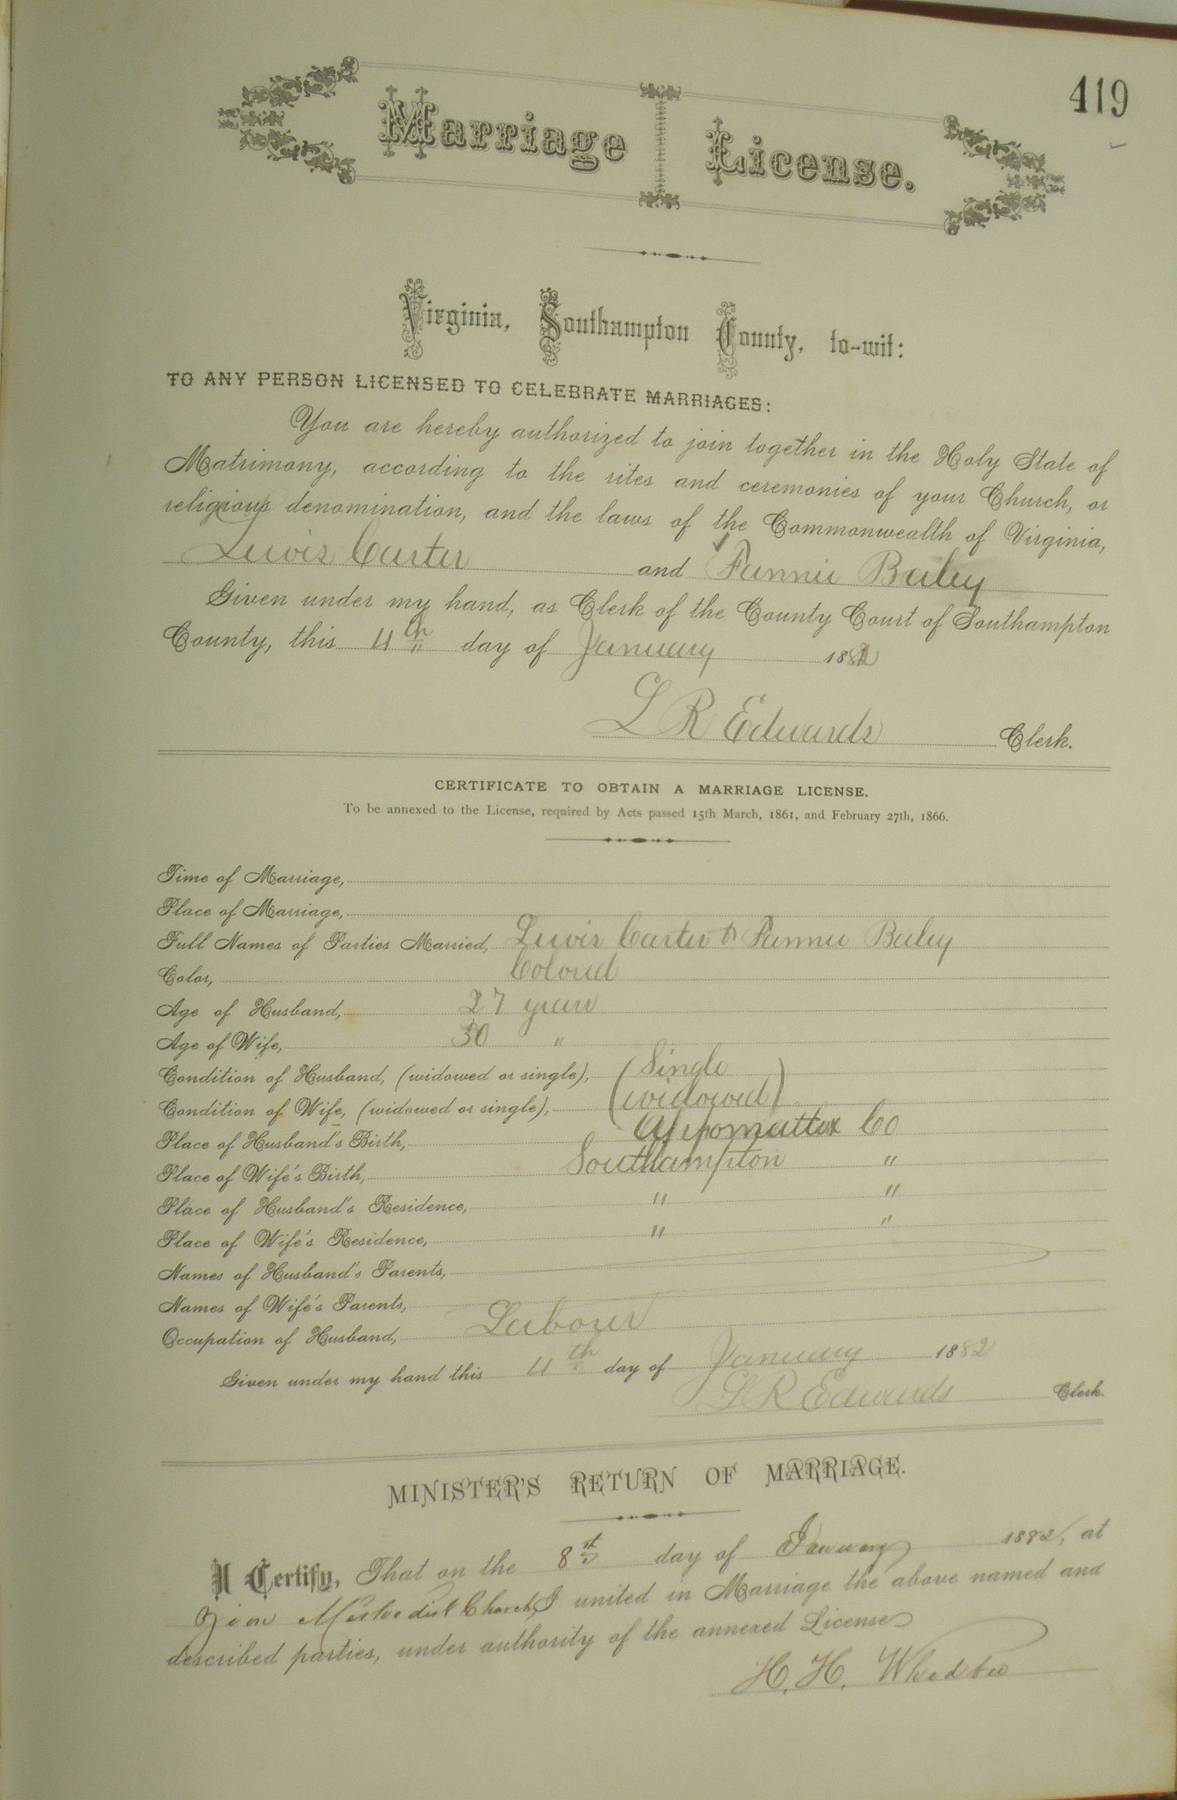 419
Marriage License.
Virginia, Southampton County, to-wit:
TO ANY PERSON LICENSED TO CELEBRATE MARRIAGES:
You are hereby authorized to join together in the Holy State of
Matrimony, according to the rites and ceremonies of your Church, or
religious denomination, and the laws of the Commonwealth of Virginia,
Lewis Carter and Fannie Baley
Given under my hand, as Clerk of the County Court of Southampton
County, this 4th day of January 1882
L R Edwards Clerk.
CERTIFICATE TO OBTAIN A MARRIAGE LICENSE.
To be annexed to the License, required by Acts passed 15th March, 1861, and February 27th, 1866.
Time of Marriage,
Place of Marriage,
Full Names of Parties Married, Lewis Carter & Fannie Baley
Color, Colored
Age of Husband, 27 years
Age of Wife, 30 "
Condition of Husband, (widowed or single), (Single
Condition of Wife, (widowed or single), (widowed)
Place of Husband's Birth, Appomattox Co
Place of Wife's Birth, Southampton "
Place of Husband's Residence, " "
Place of Wife's Residence, " "
Names of Husband's Parents,
Names of Wife's Parents,
Occupation of Husband, Laborer
Given under my hand this 4th day of January 1882
L R Edwards Clerk.
MINISTER'S RETURN OF MARRIAGE.
I Certify, That on the 8st day of January 1882, at
Zion Methodist Church, I united in Marriage the above named and
described parties, under authority of the annexed License
H. H.